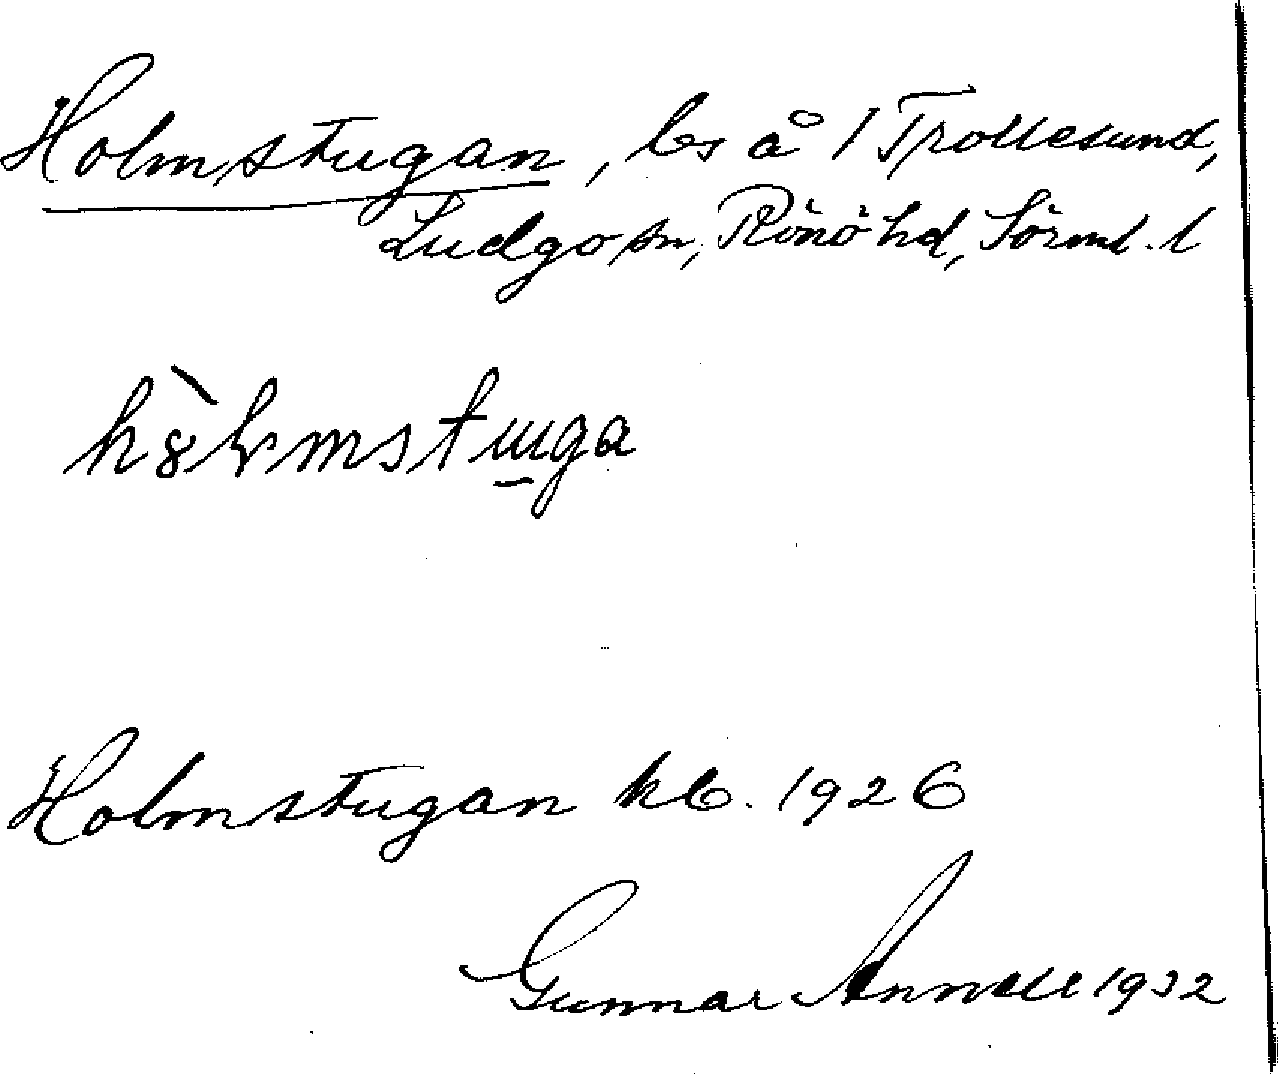 Holmstugan, ls å 1 Trollesund,
Ludgo sn, Rönö hd, Sörml. l
Holmstugan kb. 1926
Gunnar Annell 1932